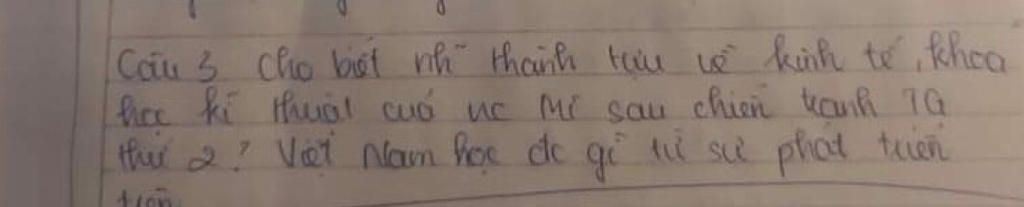 Câu 3. Cho biết nh~ thành tựu về kinh tế, khoa
học kĩ thuật của nc Mĩ sau chiến tranh TG
thứ 2? Việt Nam học đc gì từ sự phát triển
trên